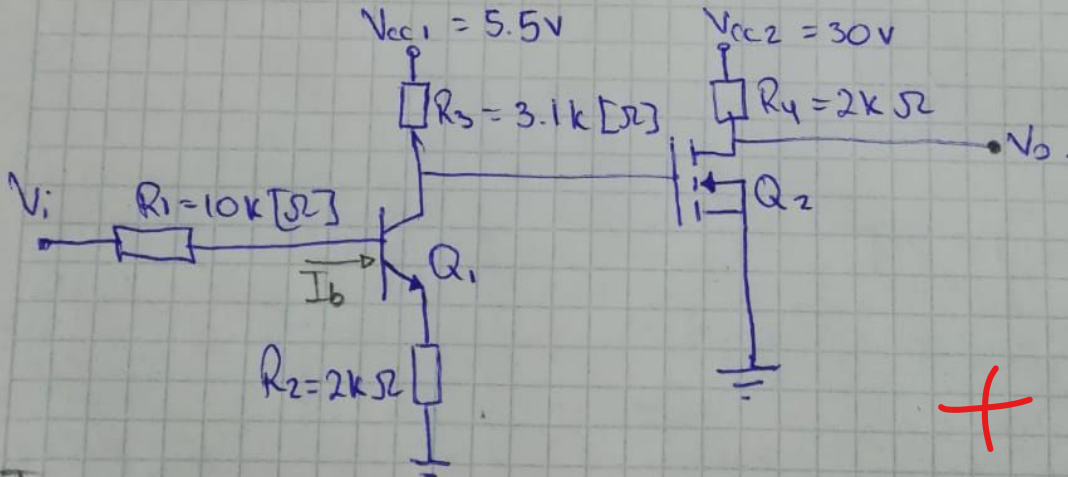 Vcc1 = 5.5v
Vcc2 = 30v
R3 = 3.1k [Ω]
R4 = 2k Ω
Vo
Vi
R1 = 10k [Ω]
Q2
Q1
Ib
R2 = 2k Ω